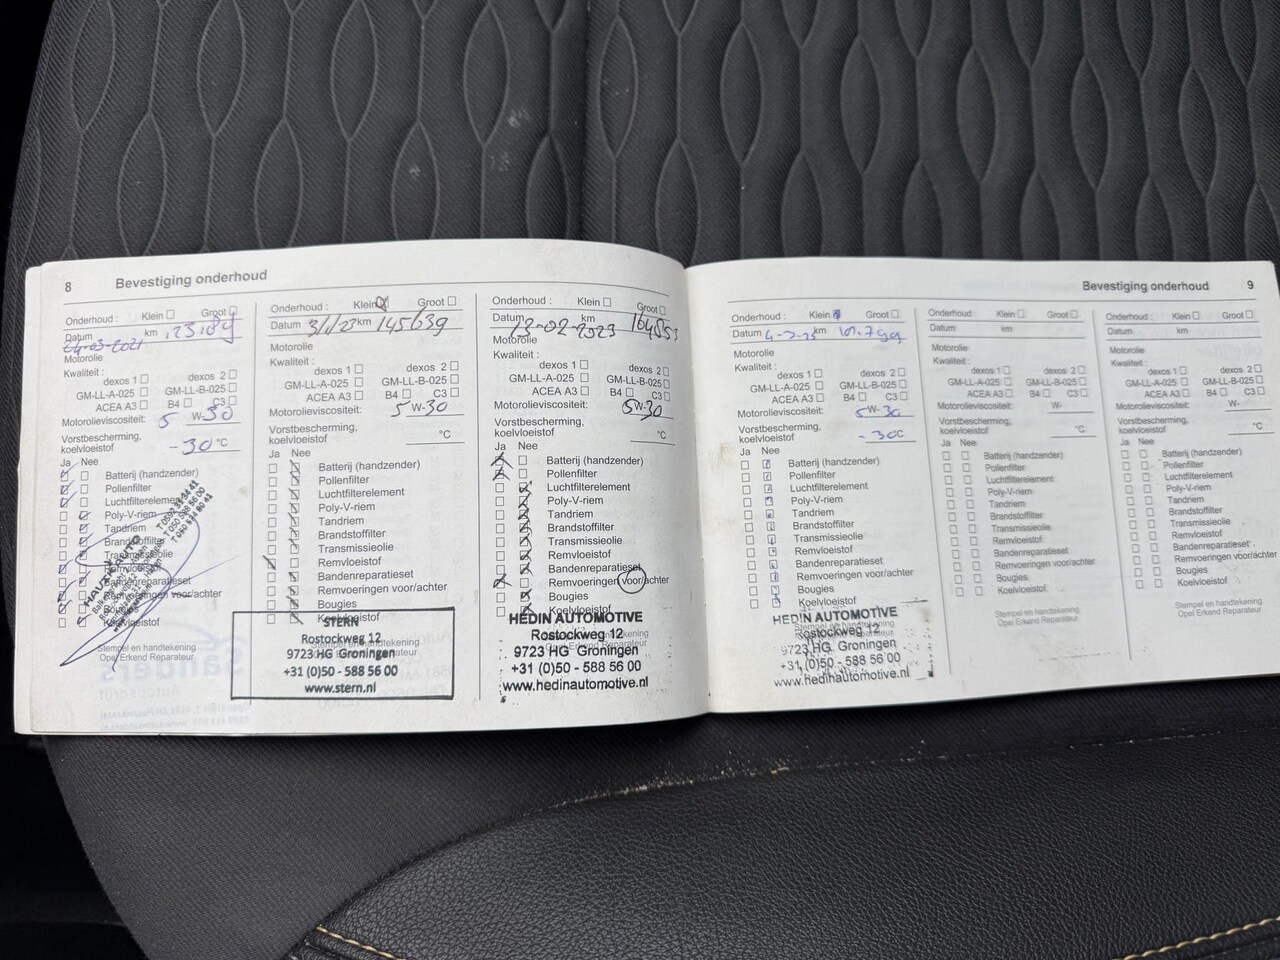 8 Bevestiging onderhoud
Onderhoud : Klein Groot
Datum km 123189
04-03-2021
Motorolie
Kwaliteit :
dexos 1 dexos 2
GM-LL-A-025 GM-LL-B-025
ACEA A3 B4 C3
Motorolieviscositeit: 5 W-30
Vorstbescherming,
koelvloeistof -30 °C
Ja Nee
Batterij (handzender)
Pollenfilter
Luchtfilterelement
Poly-V-riem
Tandriem
Brandstoffilter
Transmissieolie
Remvloeistof
Bandenreparatieset
Remvoeringen voor/achter
Bougies
Koelvloeistof
Stempel en handtekening
Opel Erkend Reparateur
Onderhoud : Klein Groot
Datum km 145639
Motorolie
Kwaliteit :
dexos 1 dexos 2
GM-LL-A-025 GM-LL-B-025
ACEA A3 B4 C3
Motorolieviscositeit: 5 W-30
Vorstbescherming,
koelvloeistof °C
Ja Nee
Batterij (handzender)
Pollenfilter
Luchtfilterelement
Poly-V-riem
Tandriem
Brandstoffilter
Transmissieolie
Remvloeistof
Bandenreparatieset
Remvoeringen voor/achter
Bougies
Koelvloeistof
STERN
Rostockweg 12
9723 HG Groningen
+31 (0)50 - 588 56 00
www.stern.nl
Onderhoud : Klein Groot
Datum 13-02-2023 km 164553
Motorolie
Kwaliteit :
dexos 1 dexos 2
GM-LL-A-025 GM-LL-B-025
ACEA A3 B4 C3
Motorolieviscositeit: 5 W-30
Vorstbescherming,
koelvloeistof °C
Ja Nee
Batterij (handzender)
Pollenfilter
Luchtfilterelement
Poly-V-riem
Tandriem
Brandstoffilter
Transmissieolie
Remvloeistof
Bandenreparatieset
Remvoeringen voor/achter
Bougies
Koelvloeistof
HEDIN AUTOMOTIVE
Rostockweg 12
9723 HG Groningen
+31 (0)50 - 588 56 00
www.hedinautomotive.nl
Bevestiging onderhoud 9
Onderhoud : Klein Groot
Datum km
Motorolie
Kwaliteit :
dexos 1 dexos 2
GM-LL-A-025 GM-LL-B-025
ACEA A3 B4 C3
Motorolieviscositeit: 5 W-30
Vorstbescherming,
koelvloeistof -30 °C
Ja Nee
Batterij (handzender)
Pollenfilter
Luchtfilterelement
Poly-V-riem
Tandriem
Brandstoffilter
Transmissieolie
Remvloeistof
Bandenreparatieset
Remvoeringen voor/achter
Bougies
Koelvloeistof
HEDIN AUTOMOTIVE
Rostockweg 12
9723 HG Groningen
+31 (0)50 - 588 56 00
www.hedinautomotive.nl
Onderhoud : Klein Groot
Datum km
Motorolie
Kwaliteit :
dexos 1 dexos 2
GM-LL-A-025 GM-LL-B-025
ACEA A3 B4 C3
Motorolieviscositeit: W-
Vorstbescherming,
koelvloeistof °C
Ja Nee
Batterij (handzender)
Pollenfilter
Luchtfilterelement
Poly-V-riem
Tandriem
Brandstoffilter
Transmissieolie
Remvloeistof
Bandenreparatieset
Remvoeringen voor/achter
Bougies
Koelvloeistof
Stempel en handtekening
Opel Erkend Reparateur
Onderhoud : Klein Groot
Datum km
Motorolie
Kwaliteit :
dexos 1 dexos 2
GM-LL-A-025 GM-LL-B-025
ACEA A3 B4 C3
Motorolieviscositeit: W-
Vorstbescherming,
koelvloeistof °C
Ja Nee
Batterij (handzender)
Pollenfilter
Luchtfilterelement
Poly-V-riem
Tandriem
Brandstoffilter
Transmissieolie
Remvloeistof
Bandenreparatieset
Remvoeringen voor/achter
Bougies
Koelvloeistof
Stempel en handtekening
Opel Erkend Reparateur